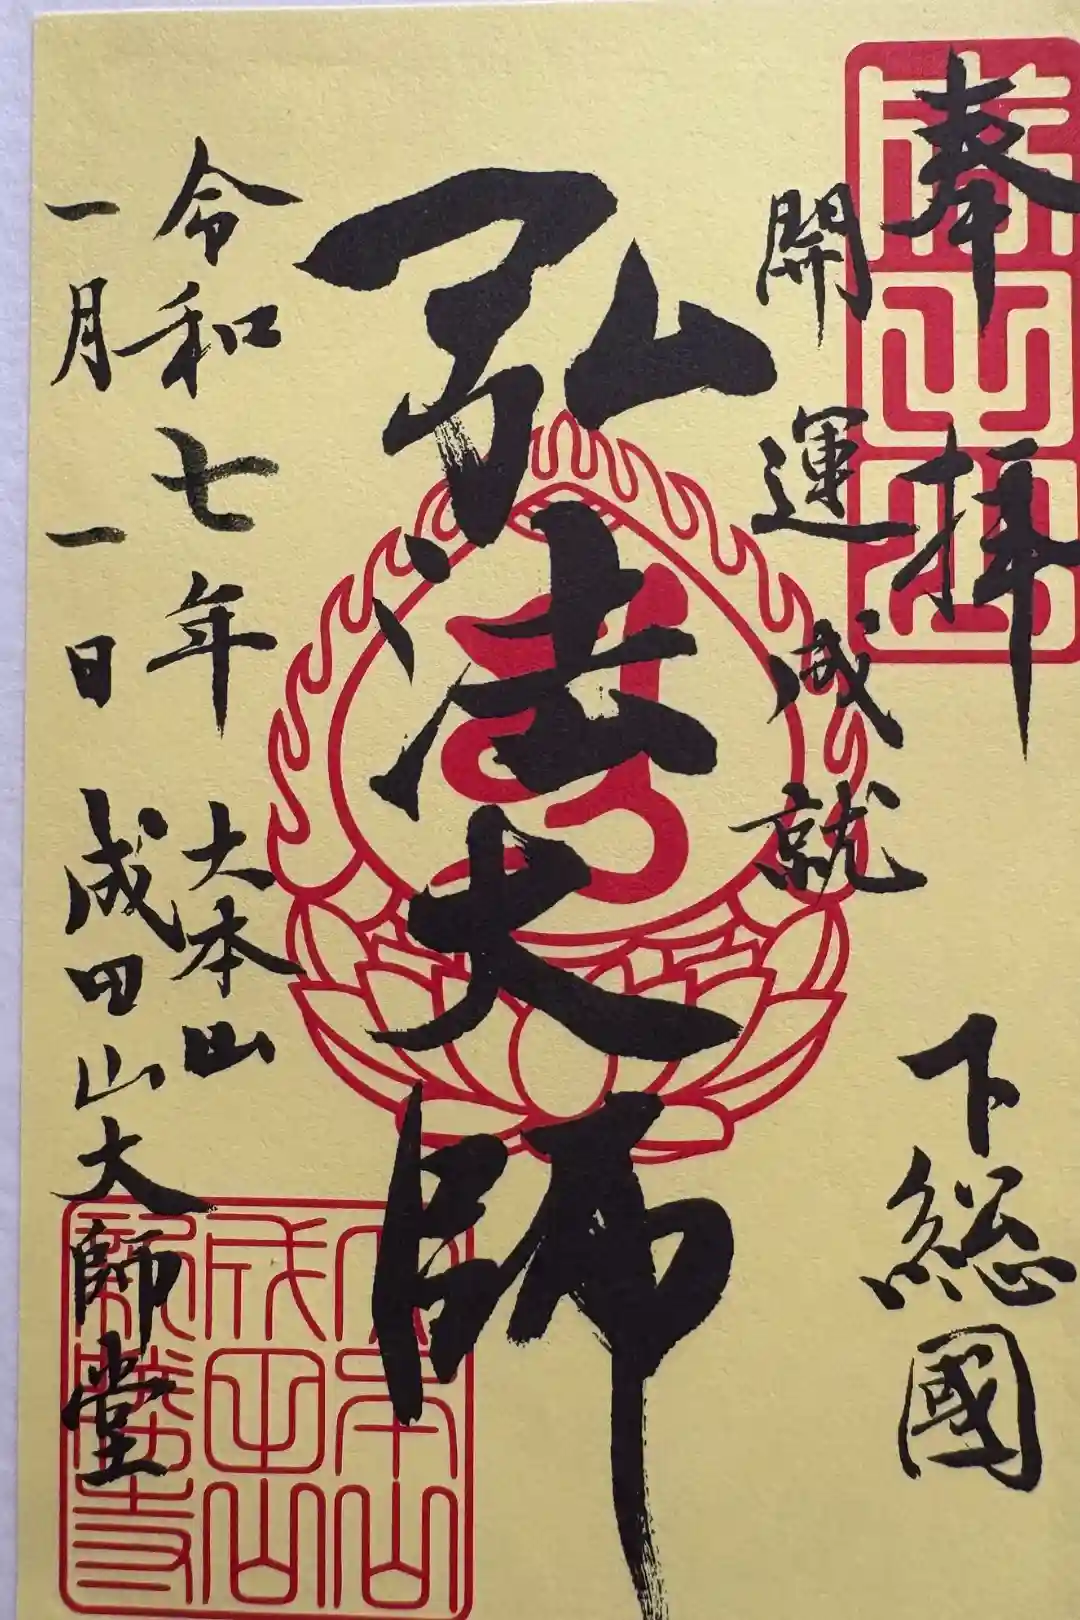 奉拝
下総國
開運成就
弘法大師
令和七年
大本山
一月一日
成田山大師堂
大本山
成田山
新勝寺